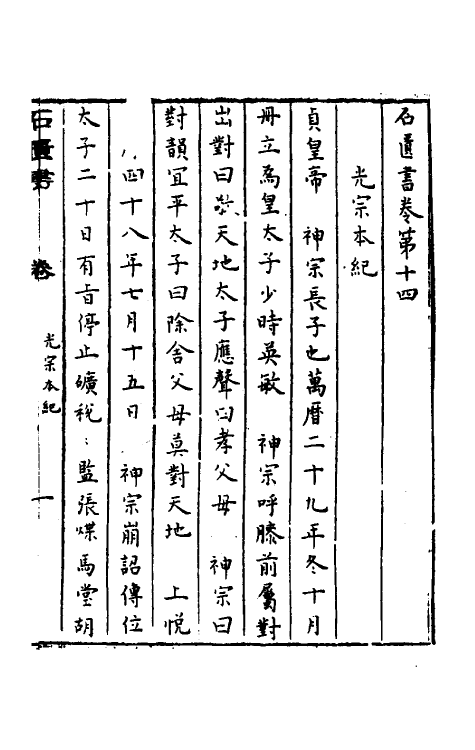 石匱書卷第十四
光宗本紀
貞皇帝　神宗長子也萬曆二十九年冬十月
冊立為皇太子少時英敏　神宗呼膝前屬對
出對曰敬天地太子應聲曰孝父母　神宗曰
對韻宜平太子曰除舍父母莫對天地　上悅
四十八年七月十五日　神宗崩詔傳位
太子二十日有旨停止礦稅〻監張燁馬堂胡
石匱書　卷　光宗本紀　一